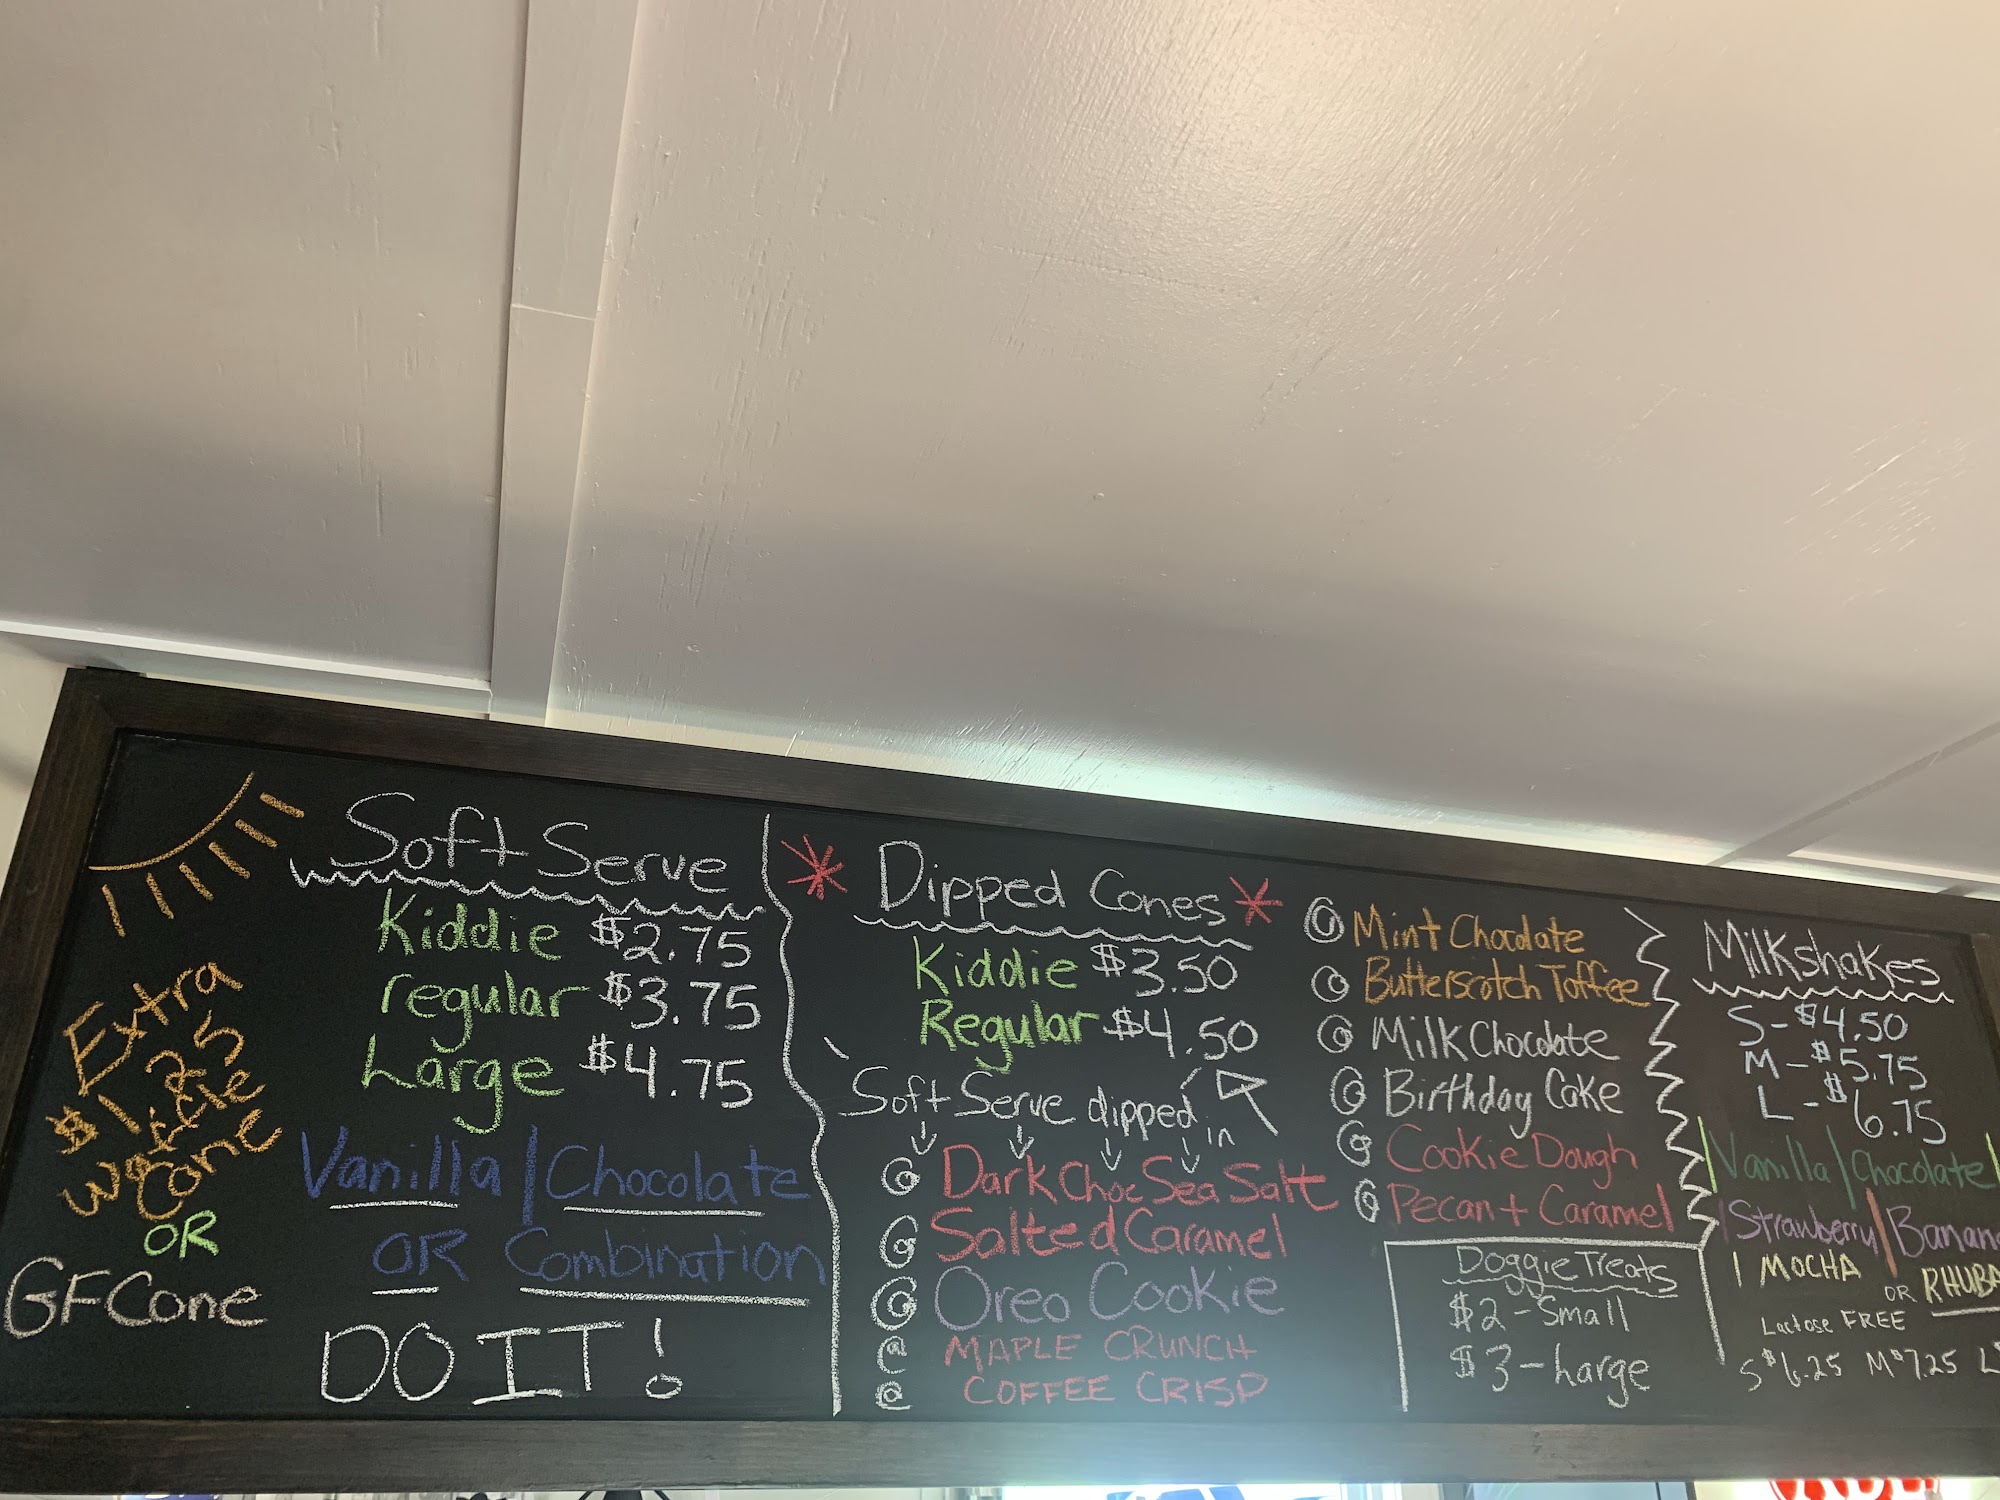 Extra
$1.25
Waffle
Cone
OR
GFCone
Soft Serve
Kiddie $2.75
regular $3.75
Large $4.75
Vanilla | Chocolate
OR Combination
DO IT!
* Dipped Cones *
Kiddie $3.50
Regular $4.50
Soft Serve dipped in
Dark Choc Sea Salt
Salted Caramel
Oreo Cookie
MAPLE CRUNCH
COFFEE CRISP
Mint Chocolate
Butterscotch Toffee
Milk Chocolate
Birthday Cake
Cookie Dough
Pecan + Caramel
Doggie Treats
$2 - Small
$3 - Large
Milkshakes
S - $4.50
M - $5.75
L - $6.75
Vanilla | Chocolate |
Strawberry | Banan
| MOCHA OR RHUBA
Lactose FREE
S $6.25 M $7.25 L